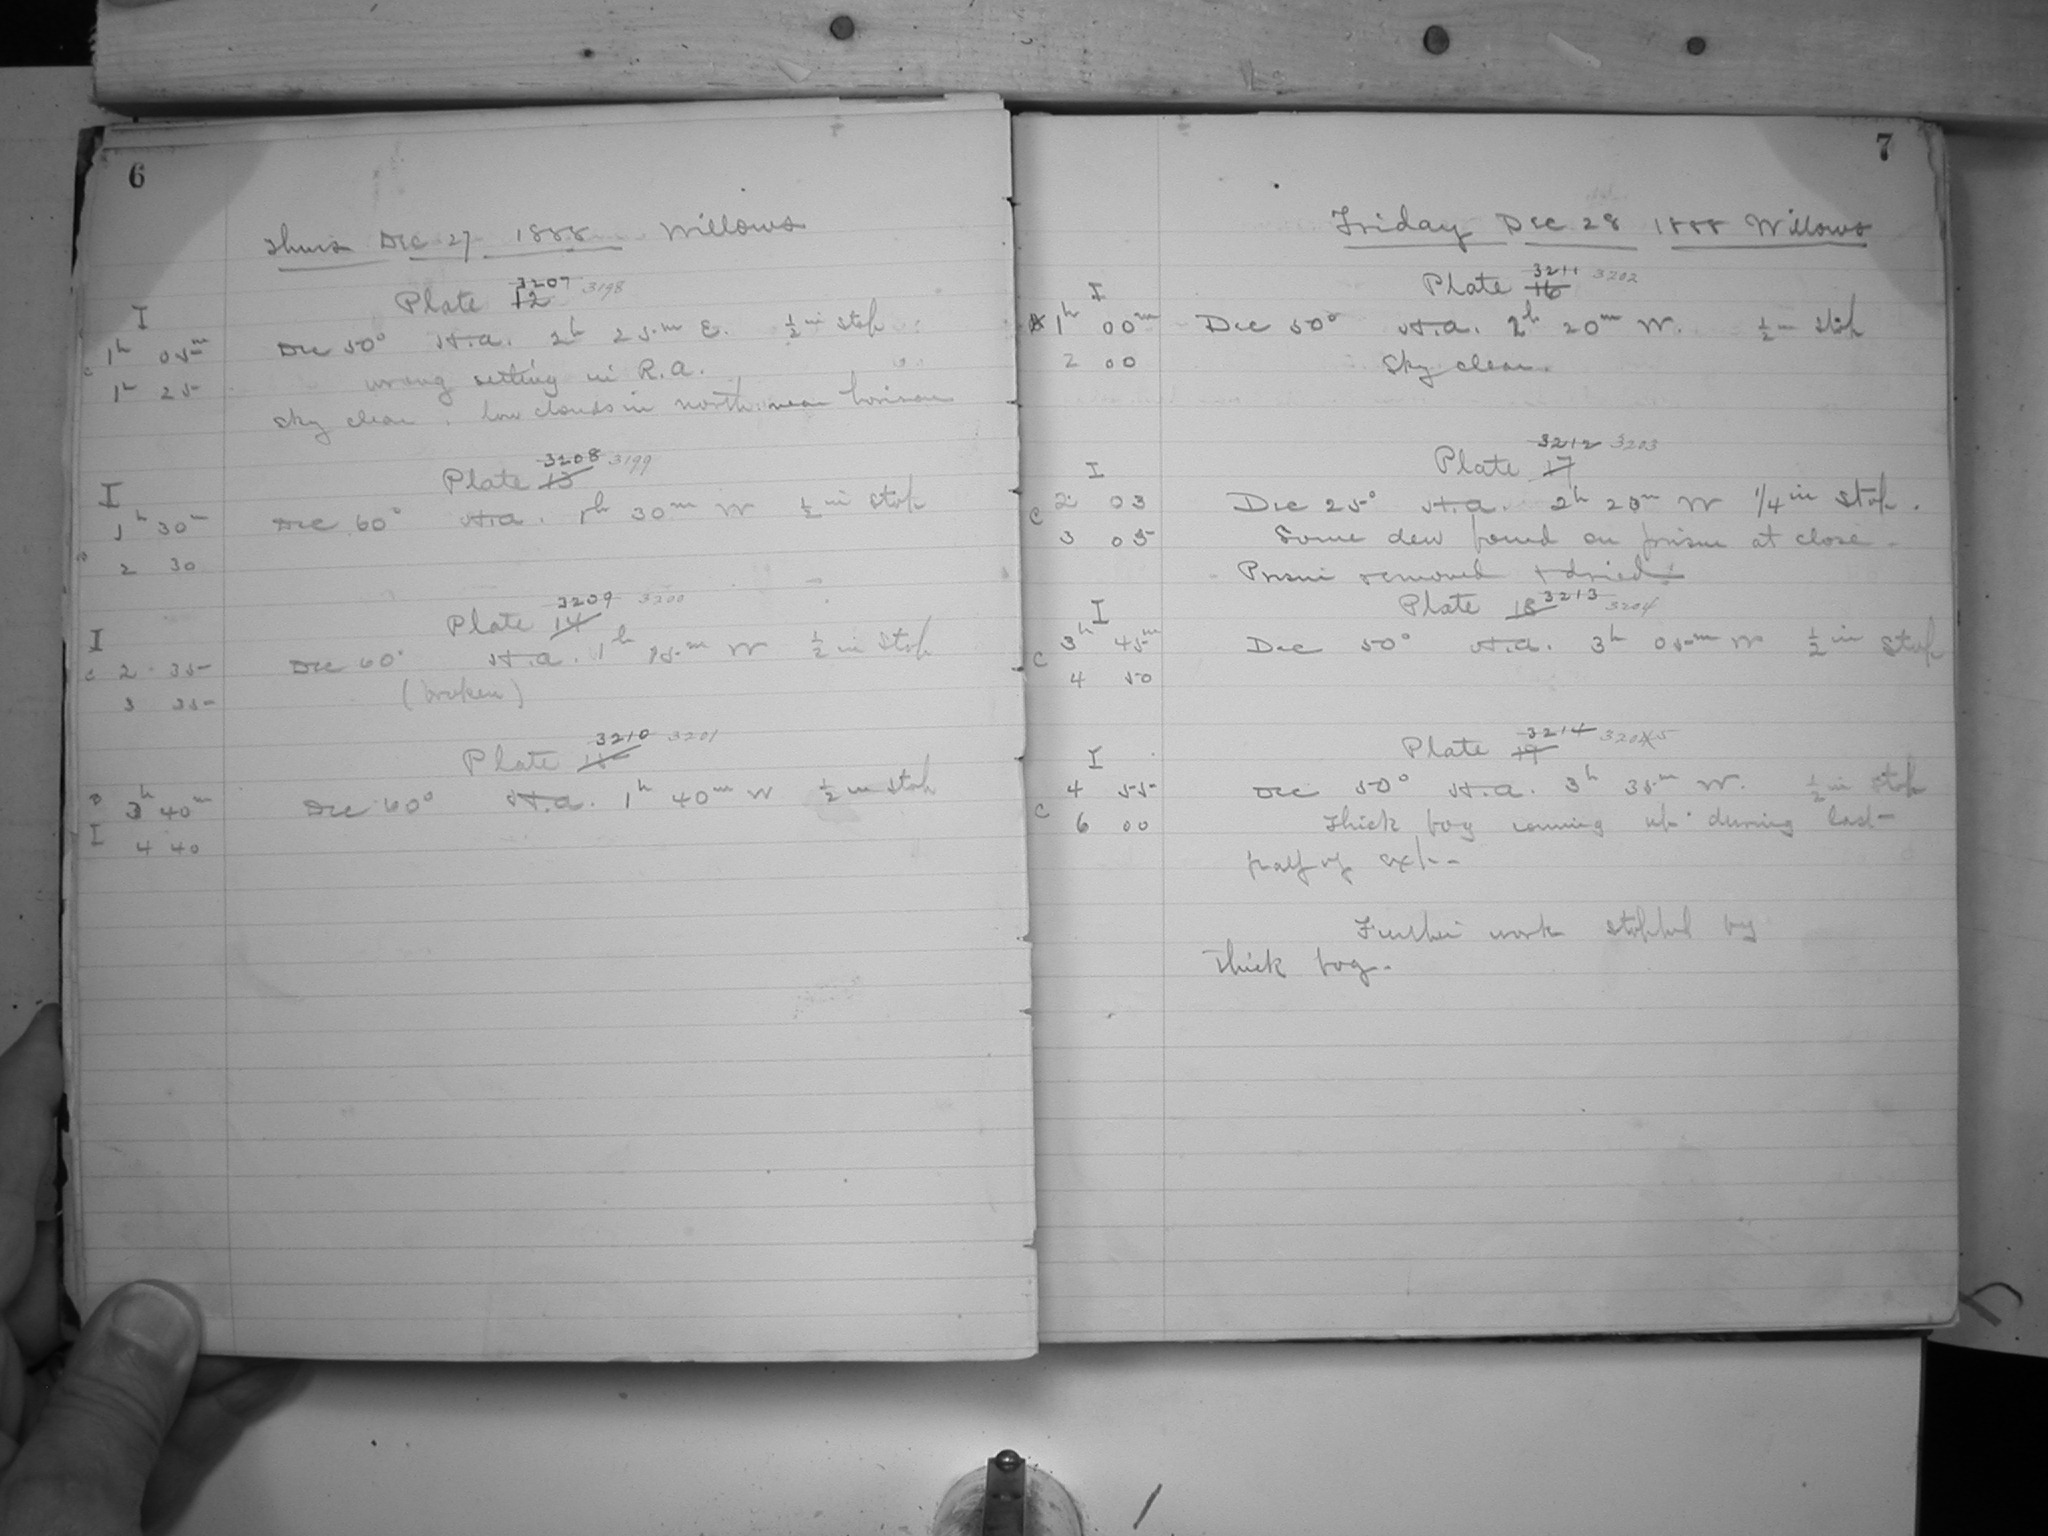 6
Thurs Dec 27 1888 Willows
Plate 12 3207 3198
I
c 1h 05m Dec 50° H.a. 2h 25m E. ½ in stop
1h 25 wrong setting in R.A.
Sky clear. low clouds in north near horizon
Plate 13 3208 3199
I
1h 30m Dec 60° H.a. 1h 30m W ½ in stop
2 30
Plate 14 3209 3200
I
c 2 35 Dec 60° H.a. 1h W ½ in stop
3 35 (broken)
Plate 15 3210 3201
3h 40m Dec 60° H.a. 1h 40m W ½ in stop
I
4 40
7
Friday Dec 28 1888 Willows
Plate 16 3211 3202
I
1h 00m Dec 50° H.a. 2h 20m W. ½ in stop
2 00 Sky clear.
Plate 17 3212 3203
I
2 03 Dec 25° H.a. 2h W 1/4 in stop.
c
3 05 Some dew found on prism at close.
Prism removed & dried
Plate 18 3213 3204
I
3h 45m Dec 50° H.a. 3h 05m W ½ in stop
c
4 50
Plate 19 3214 3204 5
I
4 55 Dec 50° H.a. 3h 35m W. ½ in stop
c
6 00 Thick fog coming up during last
half of exp.
Further work stopped by
thick fog.